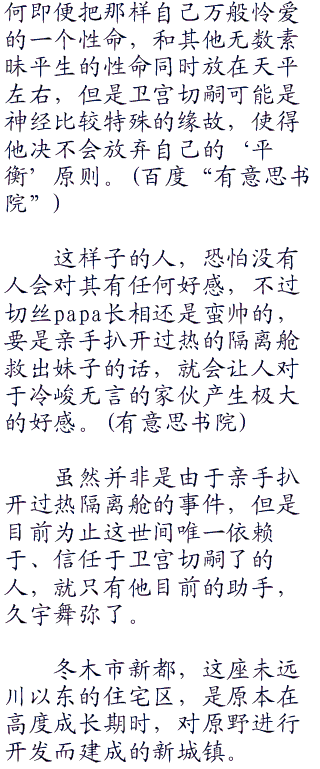 何即便把那样自己万般怜爱
的一个性命，和其他无数素
昧平生的性命同时放在天平
左右，但是卫宫切嗣可能是
神经比较特殊的缘故，使得
他决不会放弃自己的‘平
衡’原则。(百度“有意思书
院”)
这样子的人，恐怕没有
人会对其有任何好感，不过
切丝papa长相还是蛮帅的，
要是亲手扒开过热的隔离舱
救出妹子的话，就会让人对
于冷峻无言的家伙产生极大
的好感。(有意思书院)
虽然并非是由于亲手扒
开过热隔离舱的事件，但是
目前为止这世间唯一依赖
于、信任于卫宫切嗣了的
人，就只有他目前的助手，
久宇舞弥了。
冬木市新都，这座未远
川以东的住宅区，是原本在
高度成长期时，对原野进行
开发而建成的新城镇。